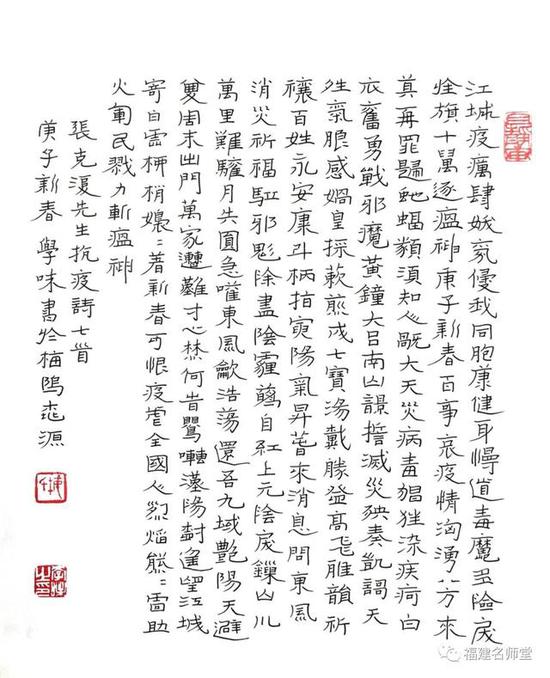 江城疫癘肆妖氛侵我同胞康健身慢道毒魔多險戾
旗十萬逐瘟神庚子新春百事哀疫情洶湧八方來
莫再罪歸蛇蝠類須知心大天災病毒猖狂染疾疴白
衣奮勇戰邪魔黃鐘大呂南山誓滅災殃奏凱謌天
生氣脈感媧皇採煎成七寶湯戴勝益高飛雅韻祈
禳百姓永安康斗柄指寅陽氣昇春來消息問東風
消災祈福驅邪除盡陰霾蘤自紅上元陰戾鎖山川
萬里難驩月共圓急嚾東風歙浩蕩還吾九域艷陽天避
雙周未出門萬家難才心焚何旹鸎囀漢陽樹遙望江城
寄白雲柳梢嬝〻著新春可恨疫虐全國心烈焰熊〻雷助
火軍民戮力斬瘟神
張克復先生抗疫詩七首
庚子新春 學味書於梅塢桃源
福建名师堂